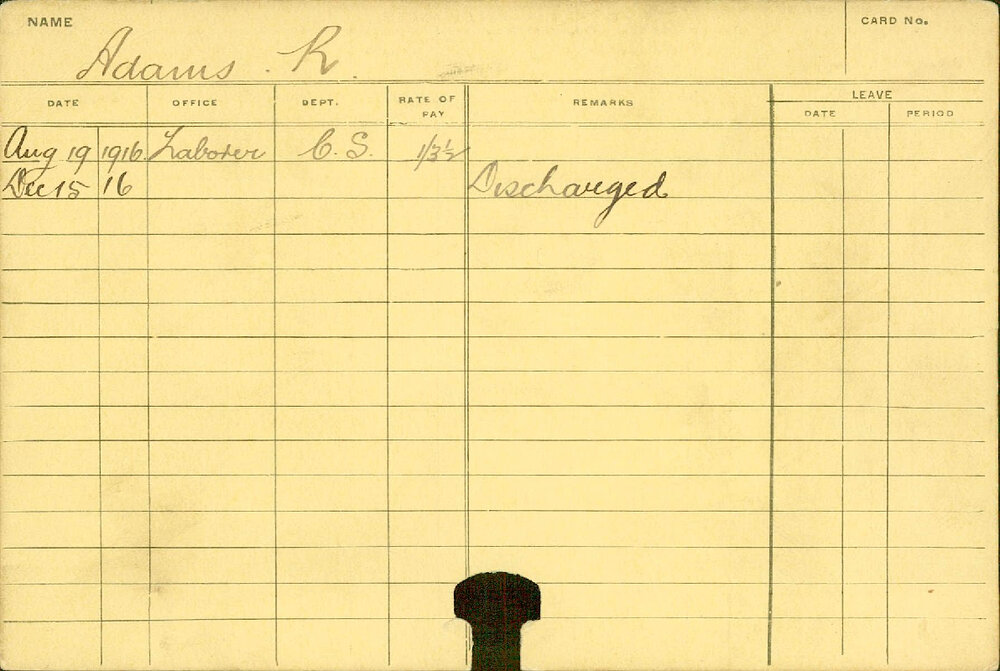 NAME Adams. R. CARD No.
DATE OFFICE DEPT. RATE OF PAY REMARKS LEAVE
DATE PERIOD
Aug 19 1916. Laborer C. S. 1/3½
Dec 15 16 Discharged